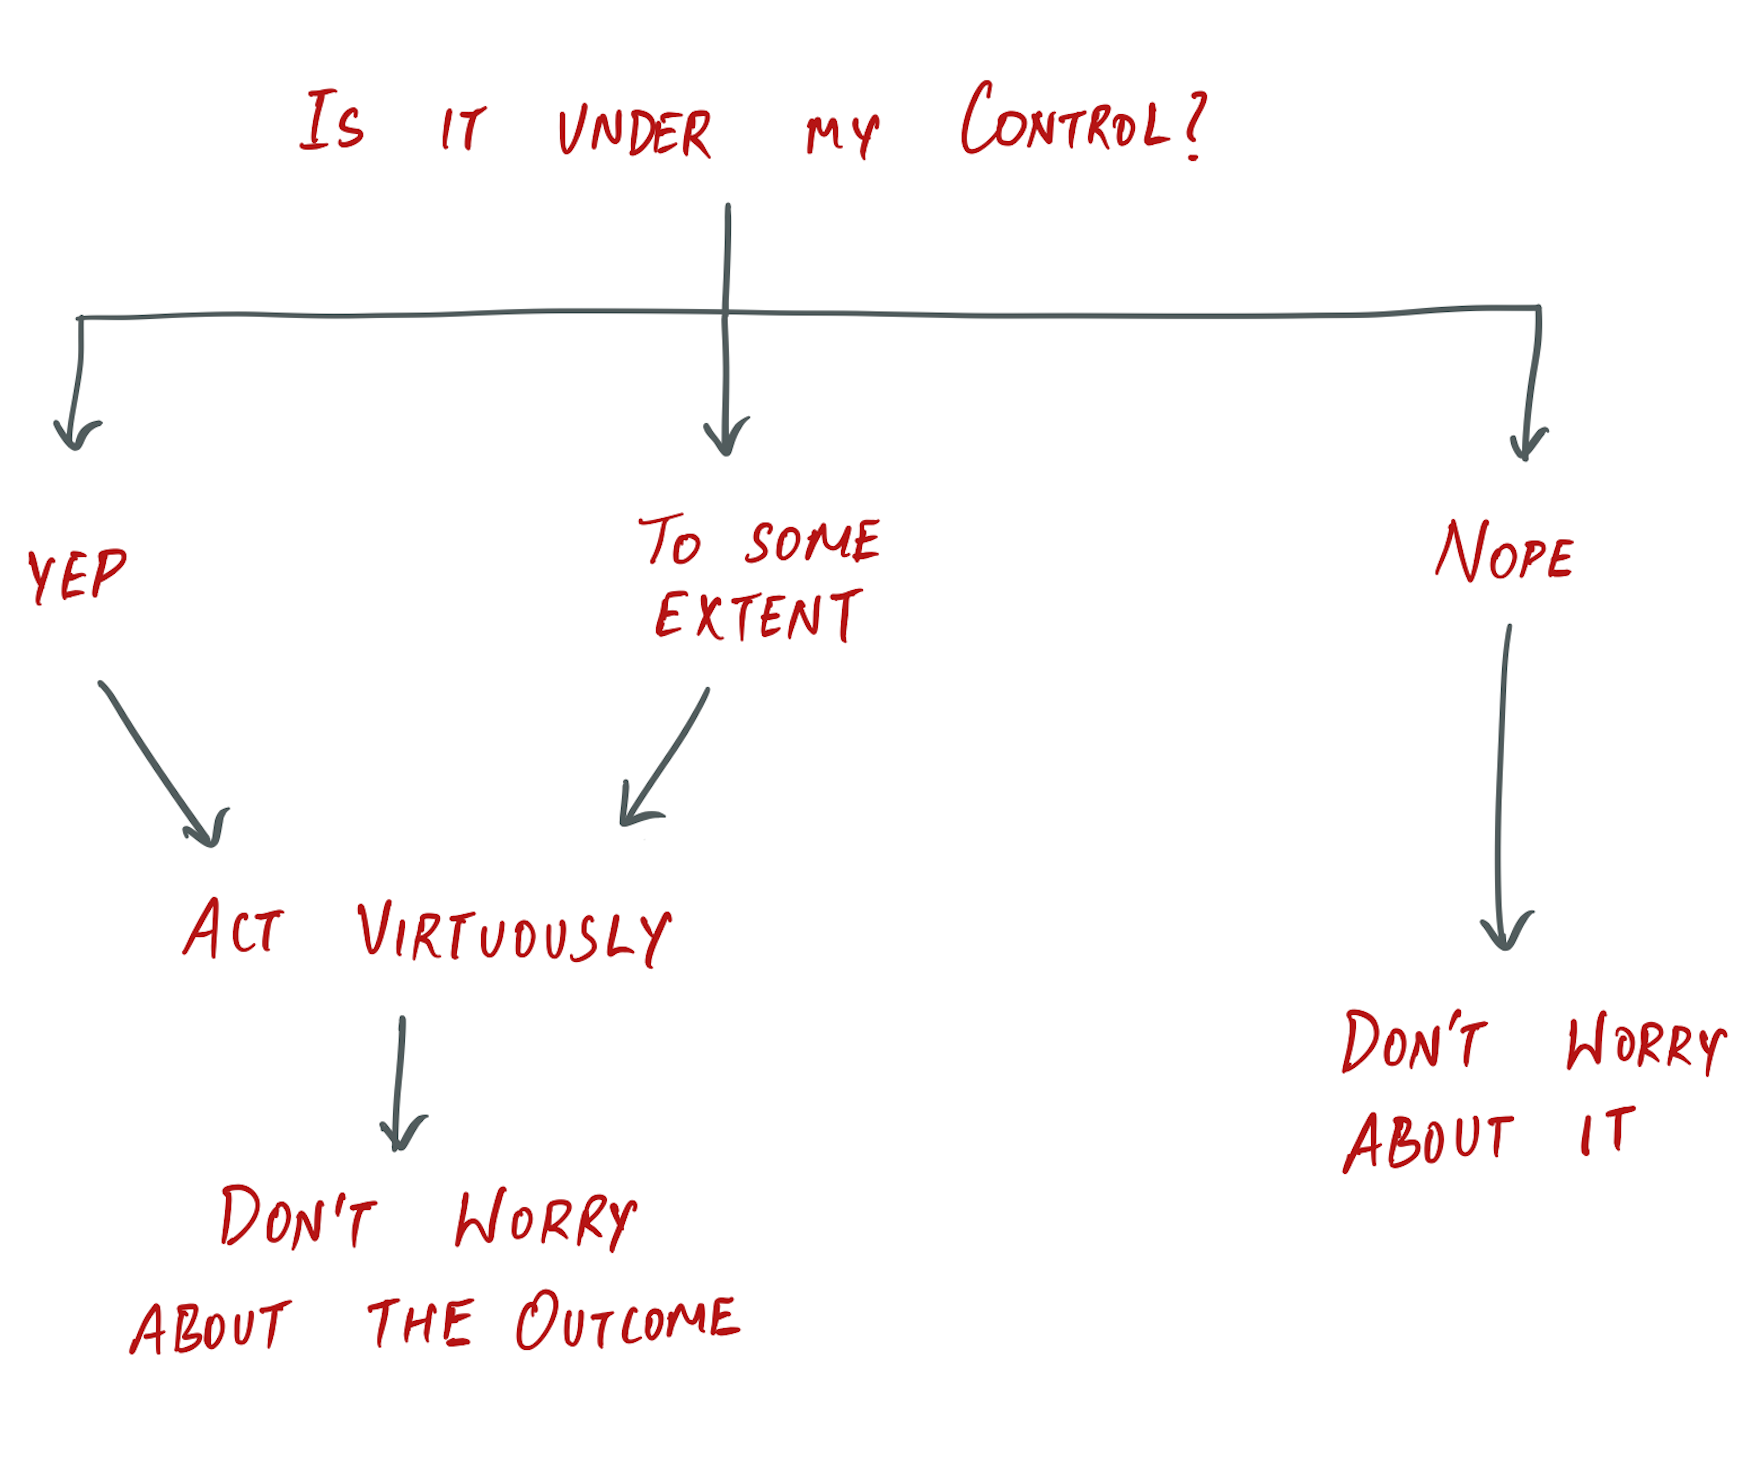 Is it under my Control?
Yep
To some
extent
Nope
Act Virtuously
Don't Worry
about it
Don't Worry
about the Outcome